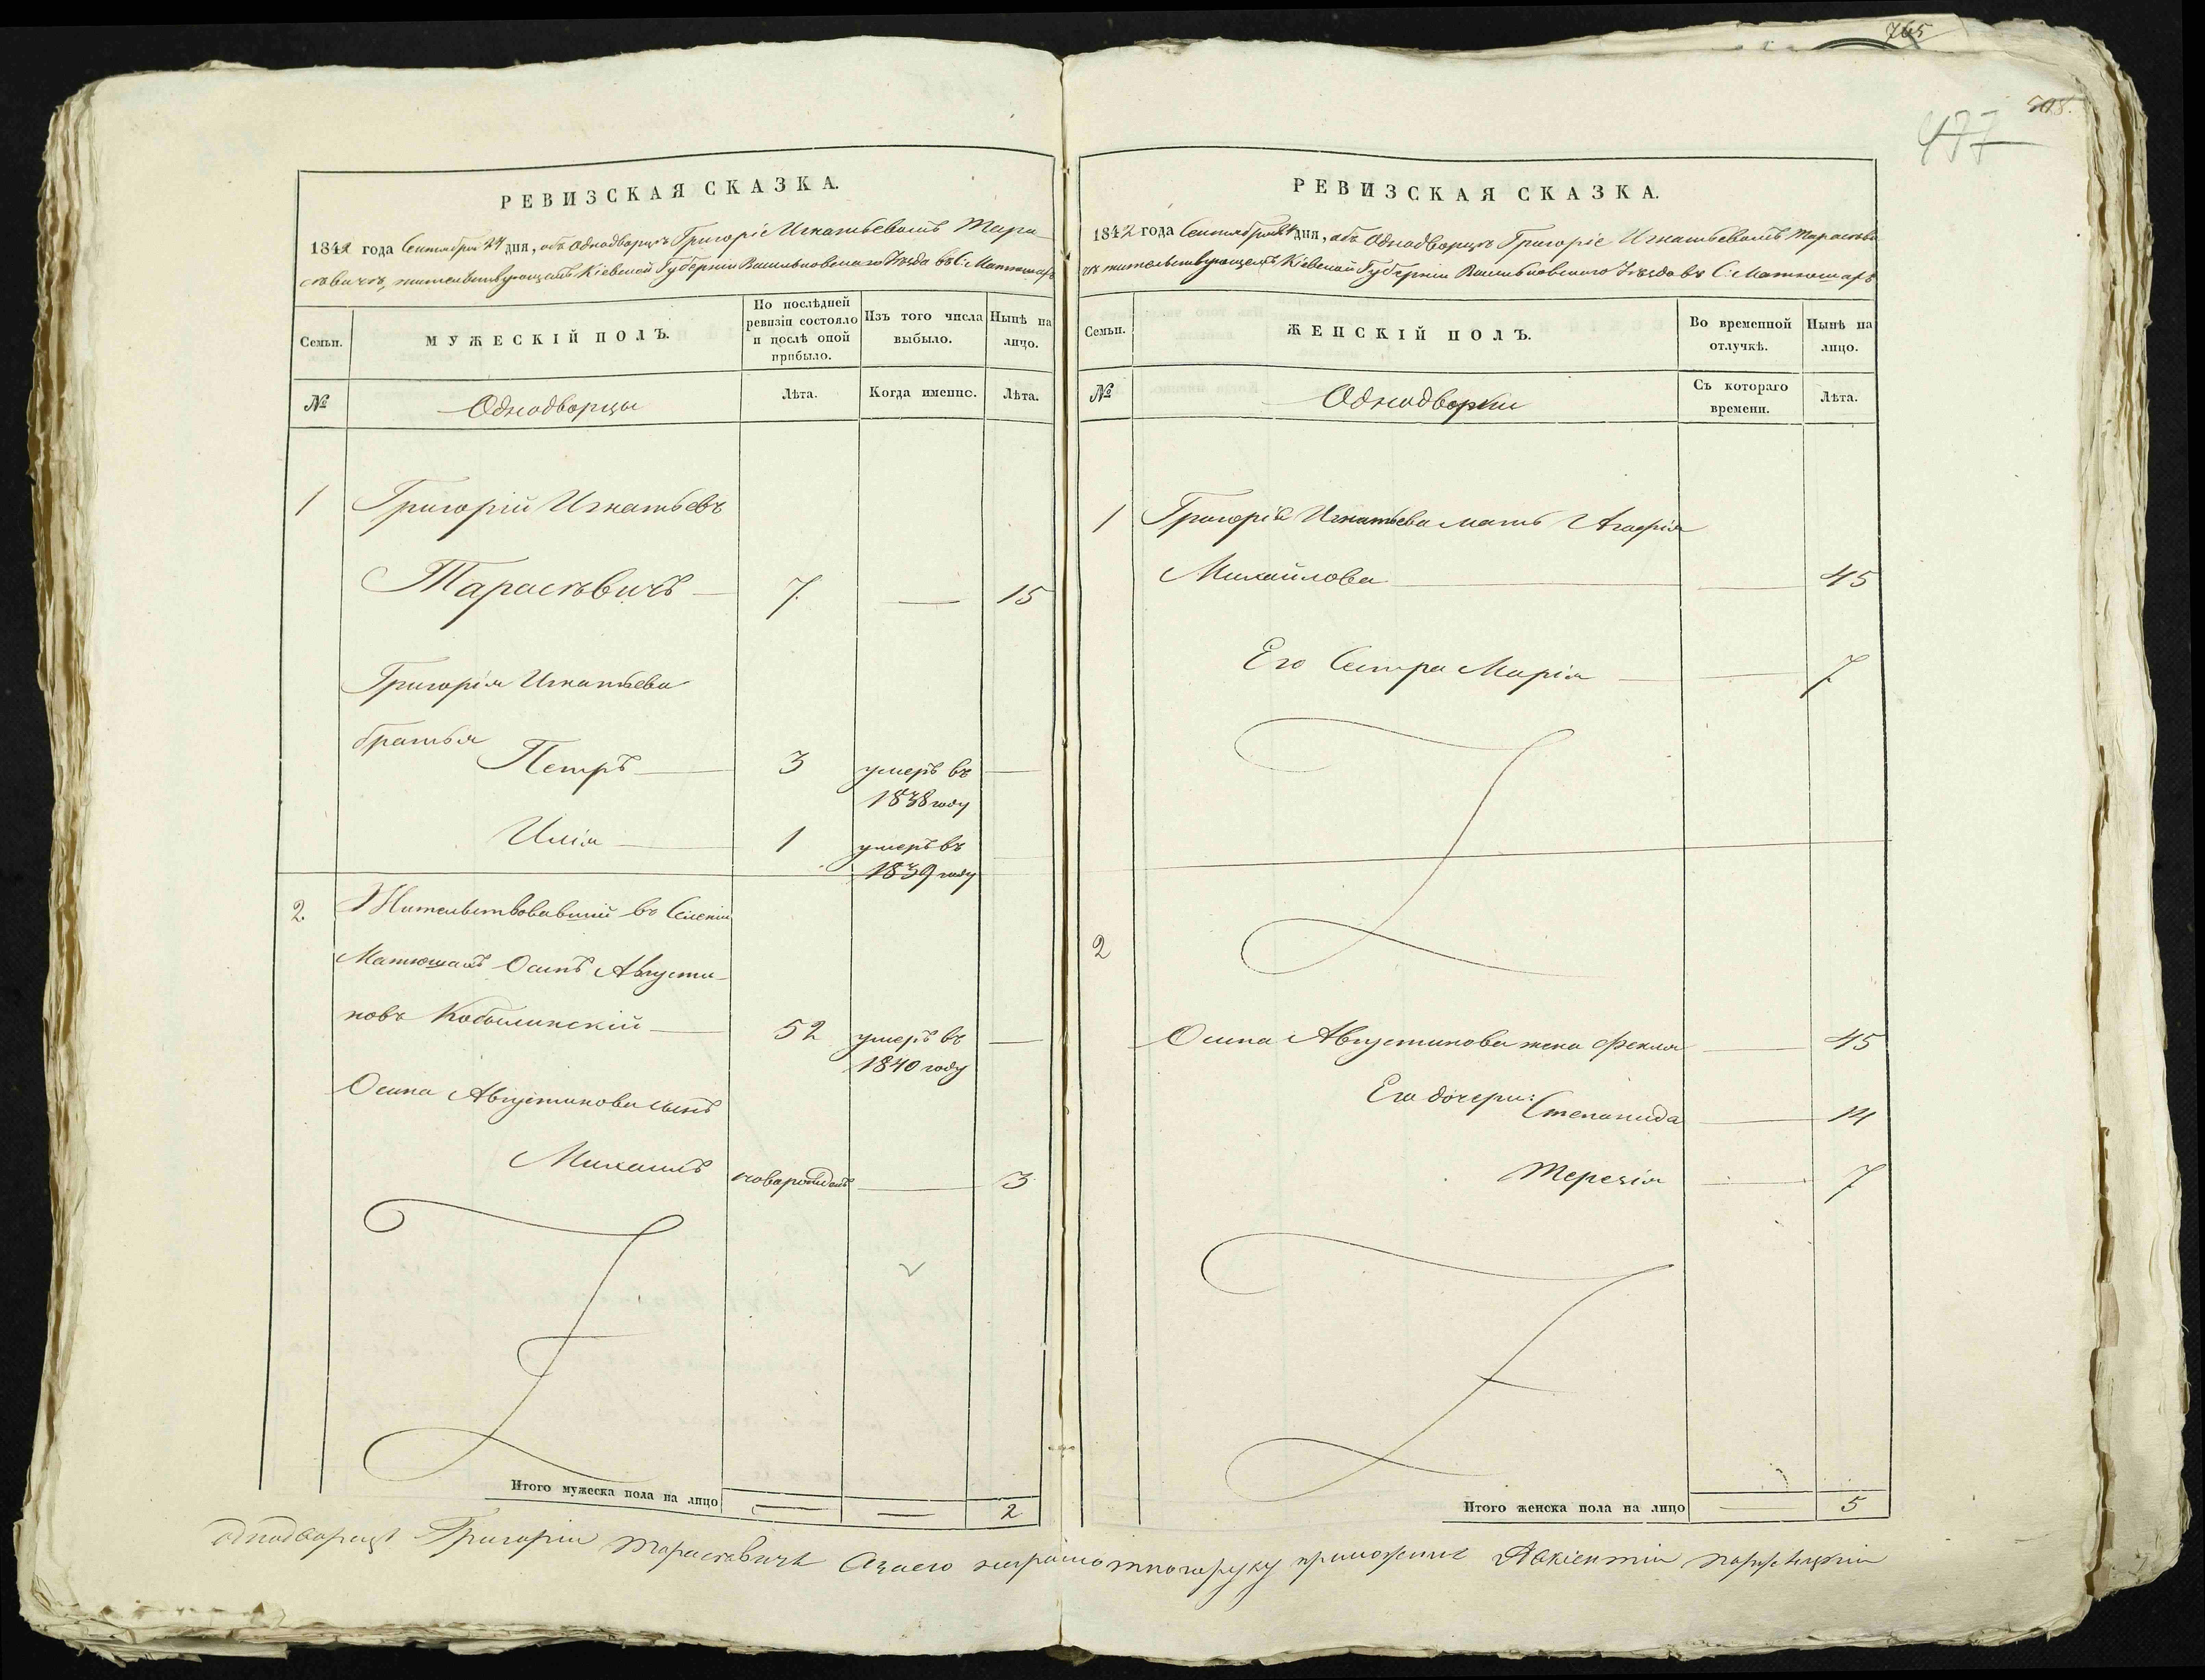 765
508.
477
РЕВИЗСКАЯ СКАЗКА.
1842 года Сентября 24 дня, объ Однодворцѣ Григоріе Игнатьевомъ Тара
сѣвичѣ, жительствующемъ Кіевской Губерніи Васильковскаго Уѣзда въ С: Матюшахъ
Семьи.
МУЖЕСКІЙ ПОЛЪ.
По послѣдней ревизіи состояло и послѣ оной прибыло.
Изъ того числа выбыло.
Нынѣ на лицо.
№
Однодворцы
Лѣта.
Когда именно.
Лѣта.
1 Григорій Игнатьевъ
Тарасѣвичъ 7 — 15
Григорія Игнатьева
братья
Петръ 3 умеръ въ —
1838 году
Илія 1 умеръ въ
1839 году
2. Жительствовавшій въ Селеніи
Матюшахъ Осипъ Августи-
новъ Кобылинскій 52 умеръ въ —
1840 году
Осипа Августинова сынъ
Михаилъ новорожденъ — 3
Итого мужеска пола на лицо — — 2
РЕВИЗСКАЯ СКАЗКА.
1842 года Сентября 24 дня, объ Однодворцѣ Григоріе Игнатьевомъ Тарасѣви
чѣ жительствующемъ Кіевской Губерніи Васильковскаго Уѣзда въ С: Матюшахъ
Семьи.
ЖЕНСКІЙ ПОЛЪ.
Во временной отлучкѣ.
Нынѣ на лицо.
№
Однодворки
Съ котораго времени.
Лѣта.
1 Григорія Игнатьева мать Агафія
Михайлова — 45
Его Сестра Марія — 7
2
Осипа Августинова жена Фекла — 45
Его дочери:
Степанида — 14
Терезія — 7
Итого женска пола на лицо — 5
однодворецъ Григорій Тарасѣвичъ Азаего неграмотногоруку приложилъ